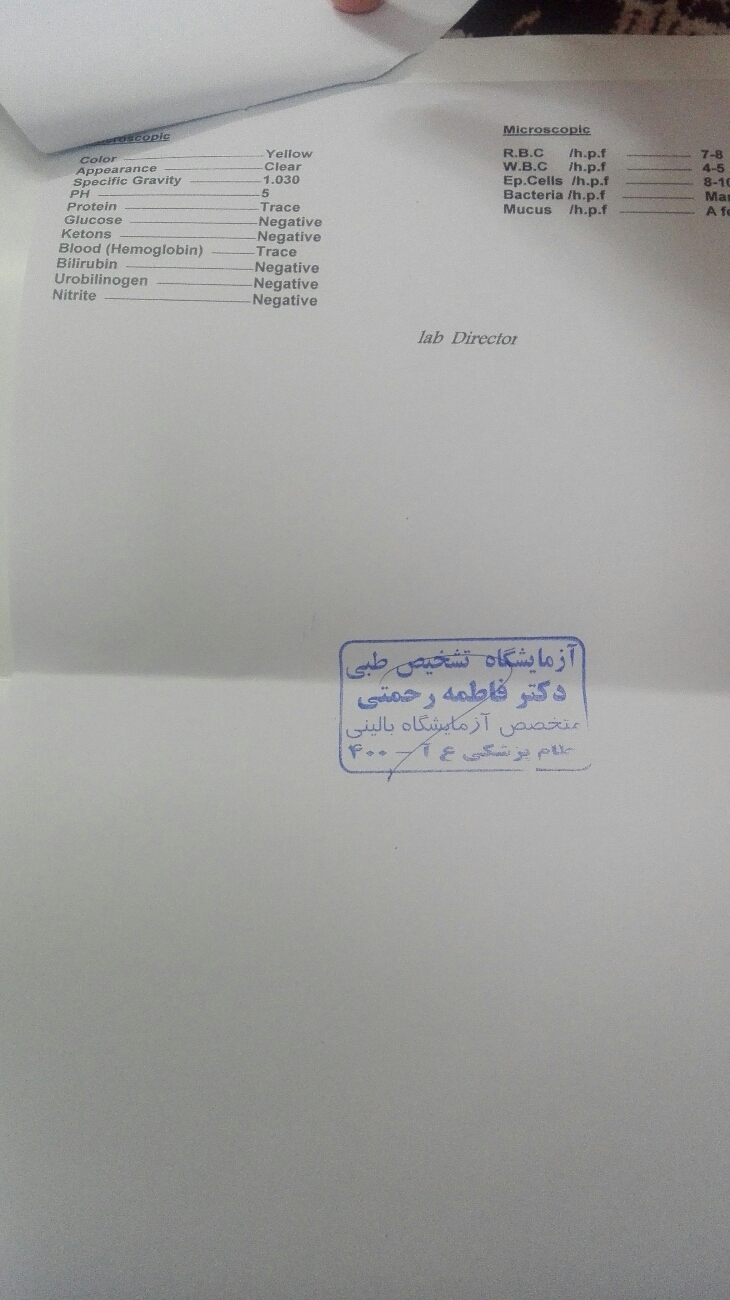 Macroscopic
Color Yellow
Appearance Clear
Specific Gravity 1.030
PH 5
Protein Trace
Glucose Negative
Ketons Negative
Blood (Hemoglobin) Trace
Bilirubin Negative
Urobilinogen Negative
Nitrite Negative
Microscopic
R.B.C /h.p.f 7-8
W.B.C /h.p.f 4-5
Ep.Cells /h.p.f 8-10
Bacteria /h.p.f
Mucus /h.p.f A
lab Director
آزمایشگاه تشخیص طبی
دکتر فاطمه رحمتی
متخصص آزمایشگاه بالینی
پزشکی ع آ - ۴۰۰